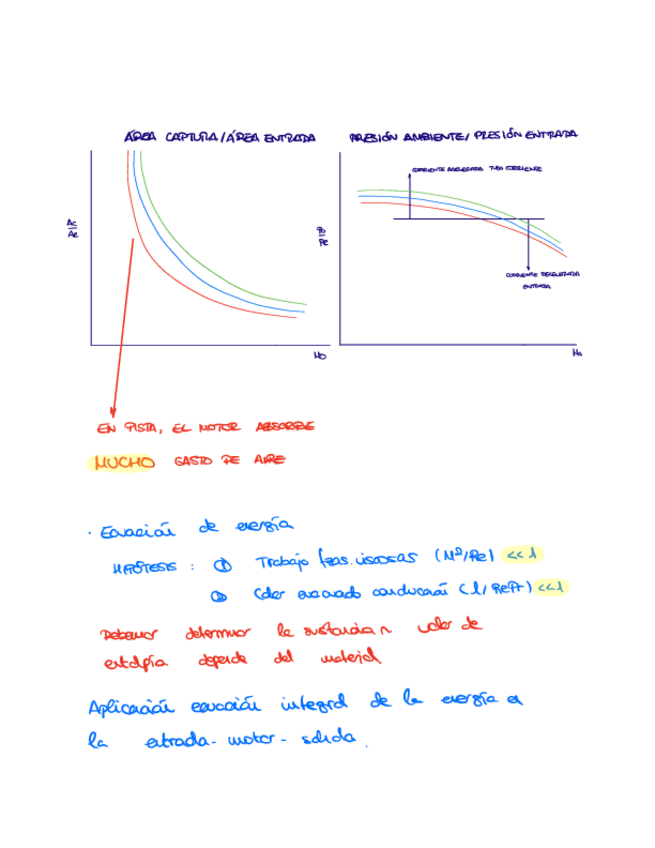 ÁREA CAPTURA / ÁREA ENTRADA
PRESIÓN AMBIENTE / PRESIÓN ENTRADA
CORRIENTE ACELERADA TUBO CORRIENTE
Ac
Ae
Pe
CORRIENTE DECELERADA
ENTRADA
Mo
Mo
EN PISTA, EL MOTOR ABSORBE
MUCHO GASTO DE AIRE
· Ecuación de energía
HIPÓTESIS : ① Trabajo fzas. viscosas (M²/Re) <<1
② Calor evacuado conducción (1/RePr) <<1
Debemos determinar la sustancia valor de
entalpía depende del material
Aplicación ecuación integral de la energía a
la entrada - motor - salida.